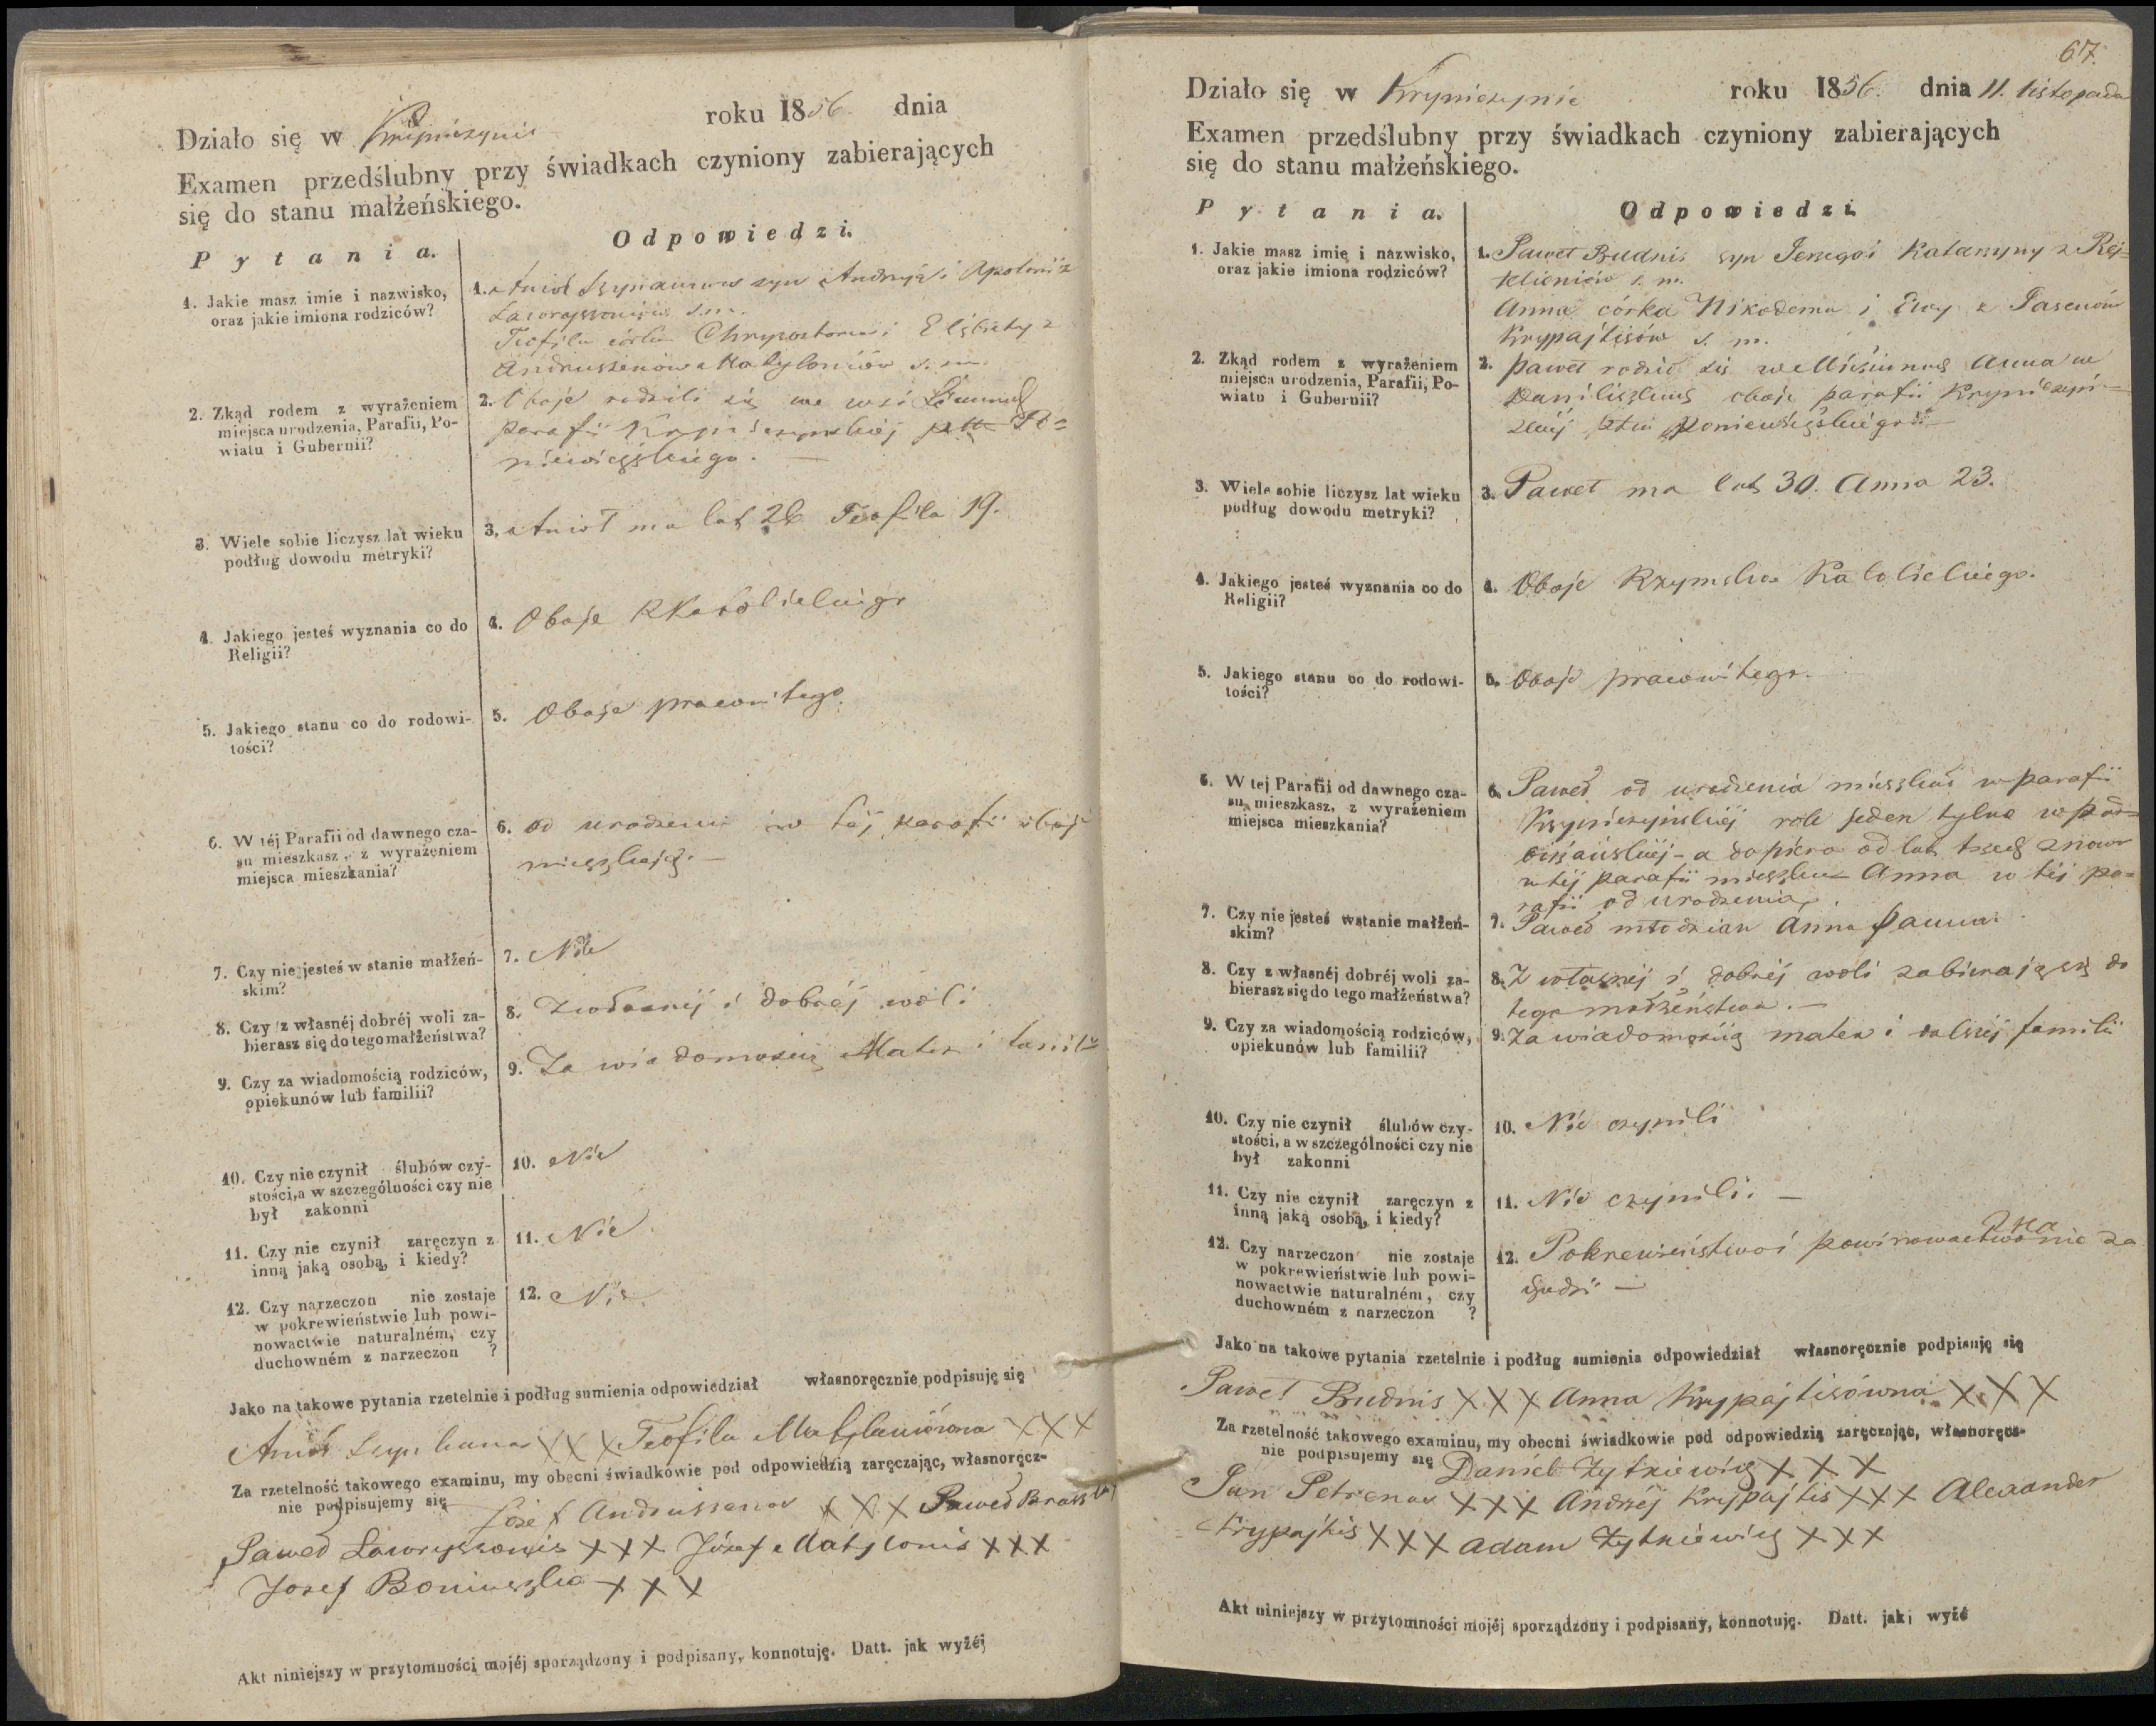 Działo się w Kryniczynie roku 1856 dnia
Examen przedślubny przy świadkach czyniony zabierających
się do stanu małżeńskiego.
Pytania. Odpowiedzi.
1. Jakie masz imie i nazwisko,
oraz jakie imiona rodziców?
1. Anioł syn Andrzeja i Apolonii z
s. m.
Teofila córka Chryzostoma i Elżbiety z
Andruszenów s. m.
2. Zkąd rodem z wyrażeniem
miejsca urodzenia, Parafii, Po-
wiatu i Gubernii?
2. Oboje rodzili się we wsi
parafii ptu Po=
niewiezskiego. —
3. Wiele sobie liczysz lat wieku
podług dowodu metryki?
3. Anioł ma lat 26 Teofila 19.
4. Jakiego jesteś wyznania co do
Religii?
4. Oboje RKatolickiego
5. Jakiego stanu co do rodowi-
tości?
5. Oboje pracowitego.
6. W téj Parafii od dawnego cza-
su mieszkasz, z wyrażeniem
miejsca mieszkania?
6. od urodzenia w tej parafii oboje
mieszkają. —
7. Czy nie jesteś w stanie małżeń-
skim?
7. Nie
8. Czy z własnéj dobréj woli za-
bierasz się do tego małżeństwa?
8. Z własnéj i dobréj woli
9. Czy za wiadomością rodziców,
opiekunów lub familii?
9. Za wiadomością Matek i familii
10. Czy nie czynił ślubów czy-
stości, a w szczególności czy nie
był zakonni
10. Nie
11. Czy nie czynił zaręczyn z
inną jaką osobą, i kiedy?
11. Nie
12. Czy narzeczon nie zostaje
w pokrewieństwie lub powi-
nowactwie naturalném, czy
duchowném z narzeczon ?
12. Nie.
Jako na takowe pytania rzetelnie i podług sumienia odpowiedział własnoręcznie podpisuję się
Anioł XXX Teofila XXX
Za rzetelność takowego examinu, my obecni świadkowie pod odpowiedzią zaręczając, własnoręcz-
nie podpisujemy się Józef Andruszenas XXX Paweł
Paweł Lawryszonis XXX Józef Matylonis XXX
Jozef XXX
Akt niniejszy w przytomności mojéj sporządzony i podpisany, konnotuję. Datt. jak wyżéj
67.
Działo się w Kryniczynie roku 1856. dnia 11. listopada
Examen przedślubny przy świadkach czyniony zabierających
się do stanu małżeńskiego.
Pytania. Odpowiedzi.
1. Jakie masz imię i nazwisko,
oraz jakie imiona rodziców?
1. Paweł Budnis syn Jerzego i Katarzyny z Rej=
s. m.
Anna córka Nikodema i Ewy z Jasenów
Krypajtisów s. m.
2. Zkąd rodem z wyrażeniem
miejsca urodzenia, Parafii, Po-
wiatu i Gubernii?
2. Paweł rodził się we Anna we
Daniliszkach oboje parafii Kryniczyń=
skiéj ptu Poniewiezskiego —
3. Wiele sobie liczysz lat wieku
podług dowodu metryki?
3. Paweł ma lat 30. Anna 23.
4. Jakiego jesteś wyznania co do
Religii?
4. Oboje Rzymsko Katolickiego.
5. Jakiego stanu co do rodowi-
tości?
5. Oboje pracowitego.
6. W tej Parafii od dawnego cza-
su mieszkasz, z wyrażeniem
miejsca mieszkania?
6. Paweł od urodzenia mieszkał w parafii
Kryniczyńskiéj rok jeden tylko w
a dopiero od lat trzech znowu
w téj parafii mieszka Anna w téj pa=
rafii od urodzenia.
7. Czy nie jesteś wstanie małżeń-
skim?
7. Paweł młodzian Anna panna.
8. Czy z własnéj dobréj woli za-
bierasz się do tego małżeństwa?
8. Z własnéj i dobréj woli zabierają się do
tego małżeństwa. —
9. Czy za wiadomością rodziców,
opiekunów lub familii?
9. Za wiadomością matek i całéj familii
10. Czy nie czynił ślubów czy-
stości, a w szczególności czy nie
był zakonni
10. Nie czynili
11. Czy nie czynił zaręczyn z
inną jaką osobą, i kiedy?
11. Nie czynili. —
12. Czy narzeczon nie zostaje
w pokrewieństwie lub powi-
nowactwie naturalném, czy
duchowném z narzeczon ?
12. Pokrewieństwo i powinowactwo nie za
chodzi —
Jako na takowe pytania rzetelnie i podług sumienia odpowiedział własnoręcznie podpisuję się
Paweł Budnis XXX Anna Krypajtisówna XXX
Za rzetelność takowego examinu, my obecni świadkowie pod odpowiedzią zaręczając, własnoręcz-
nie podpisujemy się Daniel Żytkiewicz XXX
Jan Petrenas XXX Andrzéj Krypajtis XXX Alexander
Krypajtis XXX Adam Żytkiewicz XXX
Akt niniejszy w przytomności mojéj sporządzony i podpisany, konnotuję. Datt. jak wyżé